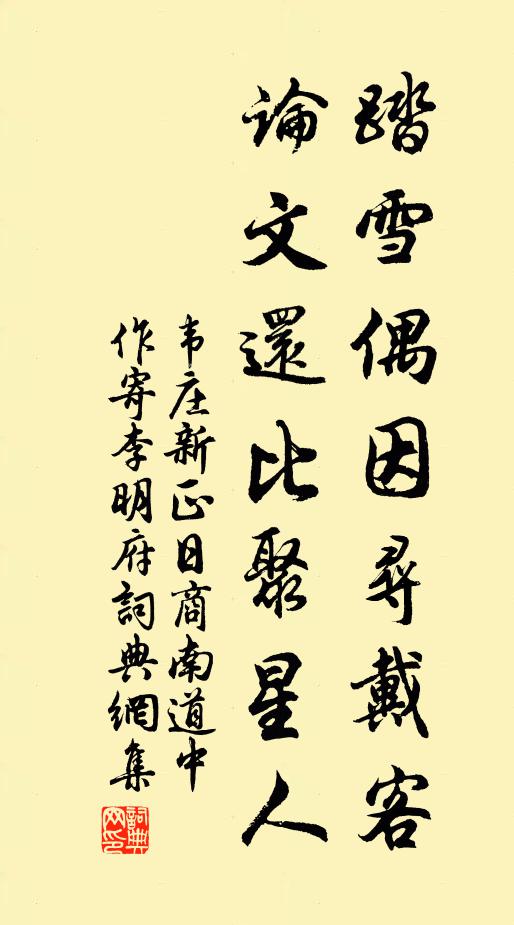 踏雪偶因尋戴客
論文還比聚星人
韦庄新正日商南道中
作寄李明府詞典網集
詞典
网印